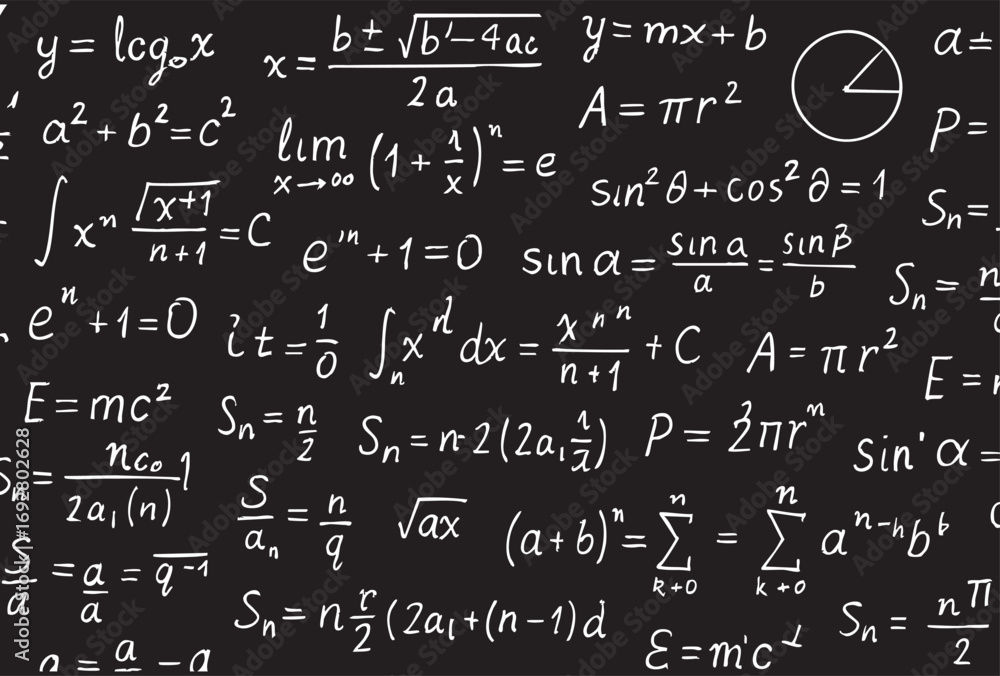 y = lcg₀x
x = (b ± √(b′−4ac)) / 2a
y = mx + b
a ±
a² + b² = c²
A = πr²
P =
lim x→∞ (1 + 1/x)ⁿ = e
sin²θ + cos²∂ = 1
Sₙ =
∫ xⁿ √(x+1) / (n+1) = C
e′ⁿ + 1 = 0
sin a = sin a / a = sin β / b
Sₙ = n
eⁿ + 1 = 0
it = 1/0
dx = xⁿⁿ / (n+1) + C
A = πr²
E =
E = mc²
Sₙ = n/2
Sₙ = n·2(2a₁ 1/
P = 2πrⁿ
sin' α =
Sₙ = nc₀ 1 / 2a₁(n)
S/aₙ = n/q
√ax
(a + b)ⁿ = ∑ n k+0 = ∑ n k+0 aⁿ⁻ʰbᵇ
= a/a = q⁻¹
Sₙ = n r/2 (2a₁ + (n − 1)d
Sₙ = nπ / 2
a = a − a
Ɛ = m'c
Adobe Stock | #1692802628